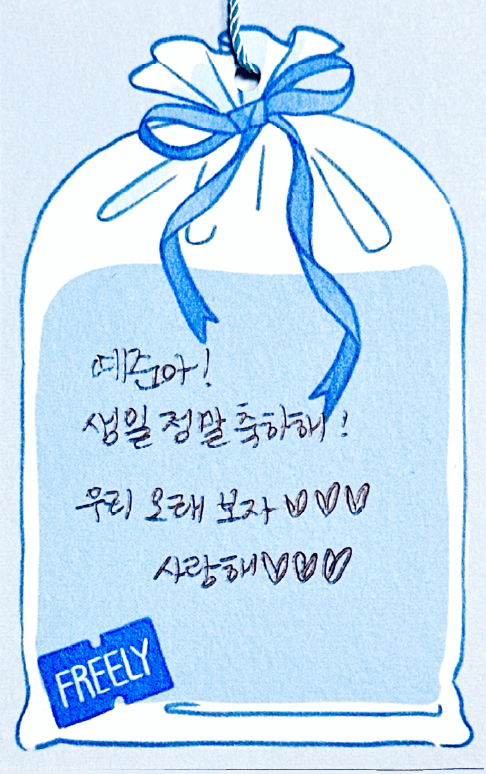 예준아!
생일 정말 축하해!
우리 오래 보자 ♡♡♡
사랑해♡♡♡
FREELY